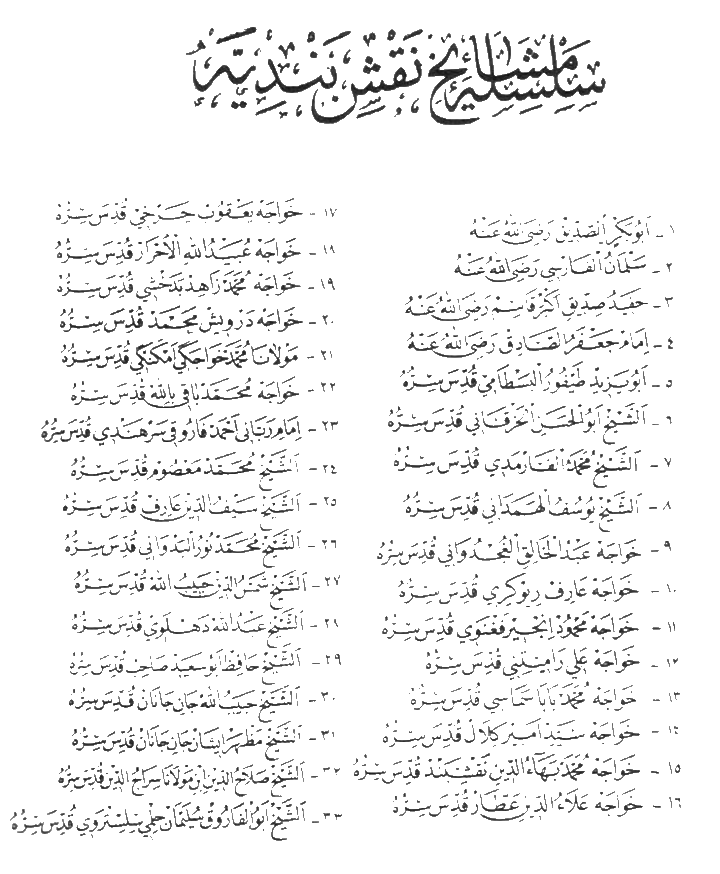 سلسلۀ مشائخ نقشبنديه
١ - اَبُوبَكْرِ الصِّدِّيق رَضِىَ اللهُ عَنْهُ
٢ - سَلْمَانُ الْفَارِسِي رَضِىَ اللهُ عَنْهُ
٣ - حفيد صديق اكبر قاسم رَضِىَ اللهُ عَنْهُ
٤ - اِمَام جَعْفَرُ الصَّادِق رَضِىَ اللهُ عَنْهُ
٥ - اَبُو يَزِيد طَيْفُورُ الْبِسْطَامِي قُدِّسَ سِرُّهُ
٦ - اَلشَّيْخ اَبُو الْحَسَنِ الْخَرَقَانِي قُدِّسَ سِرُّهُ
٧ - اَلشَّيْخ مُحَمَّدُ الْفَارْمَدِي قُدِّسَ سِرُّهُ
٨ - اَلشَّيْخ يُوسُفُ الْهَمَدَانِي قُدِّسَ سِرُّهُ
٩ - خَوَاجَهْ عَبْدُ الْخَالِقِ الْغُجْدُوَانِي قُدِّسَ سِرُّهُ
١٠ - خَوَاجَهْ عَارِف رِيوَكِرِي قُدِّسَ سِرُّهُ
١١ - خَوَاجَهْ مَحْمُود اِنْجِير فَغْنَوِي قُدِّسَ سِرُّهُ
١٢ - خَوَاجَهْ عَلِي رَامِيتَنِي قُدِّسَ سِرُّهُ
١٣ - خَوَاجَهْ مُحَمَّد بَابَا سَمَاسِي قُدِّسَ سِرُّهُ
١٤ - خَوَاجَهْ سَيِّد اَمِير كُلَال قُدِّسَ سِرُّهُ
١٥ - خَوَاجَهْ مُحَمَّد بَهَاءُ الدِّين نَقْشِبَنْد قُدِّسَ سِرُّهُ
١٦ - خَوَاجَهْ عَلَاءُ الدِّين عَطَّار قُدِّسَ سِرُّهُ
١٧ - خَوَاجَهْ يَعْقُوب چَرْخِي قُدِّسَ سِرُّهُ
١٨ - خَوَاجَهْ عُبَيْدُ اللهِ الْاَحْرَار قُدِّسَ سِرُّهُ
١٩ - خَوَاجَهْ مُحَمَّد زَاهِد بَدَخْشِي قُدِّسَ سِرُّهُ
٢٠ - خَوَاجَهْ دَرْوِيش مُحَمَّد قُدِّسَ سِرُّهُ
٢١ - مَوْلَانَا مُحَمَّد خَوَاجَكِي اَمْكَنَكِي قُدِّسَ سِرُّهُ
٢٢ - خَوَاجَهْ مُحَمَّد بَاقِي بِاللهِ قُدِّسَ سِرُّهُ
٢٣ - اِمَام رَبَّانِي اَحْمَد فَارُوقِي سَرْهَنْدِي قُدِّسَ سِرُّهُ
٢٤ - اَلشَّيْخ مُحَمَّد مَعْصُوم قُدِّسَ سِرُّهُ
٢٥ - اَلشَّيْخ سَيْفُ الدِّين عَارِف قُدِّسَ سِرُّهُ
٢٦ - اَلشَّيْخ مُحَمَّد نُورُ الْبَدْوَانِي قُدِّسَ سِرُّهُ
٢٧ - اَلشَّيْخ شَمْسُ الدِّين حَبِيبُ اللهِ قُدِّسَ سِرُّهُ
٢٨ - اَلشَّيْخ عَبْدُ اللهِ دَهْلَوِي قُدِّسَ سِرُّهُ
٢٩ - اَلشَّيْخ حَافِظ اَبُو سَعِيد صَاحِب قُدِّسَ سِرُّهُ
٣٠ - اَلشَّيْخ حَبِيبُ الله جَانِ جَانَان قُدِّسَ سِرُّهُ
٣١ - اَلشَّيْخ مَظْهَر اِيشَان جَانِ جَانَان قُدِّسَ سِرُّهُ
٣٢ - اَلشَّيْخ صَلَاحُ الدِّين اِبْنِ مَوْلَانَا سِرَاجُ الدِّين قُدِّسَ سِرُّهُ
٣٣ - اَلشَّيْخ اَبُو الْفَارُوق سُلَيْمَان حِلْمِي سِلِسْتْرَوِي قُدِّسَ سِرُّهُ